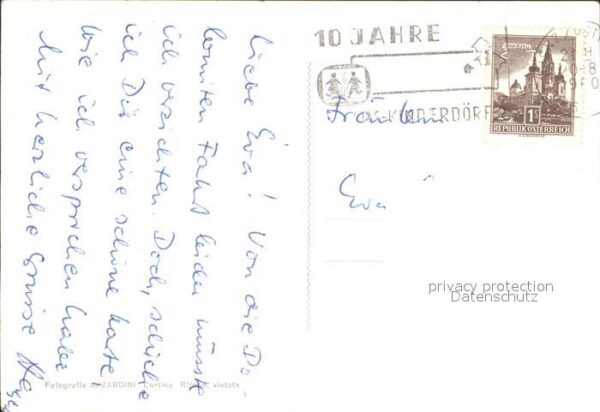 Liebe Eva! Von die Do-
lomiten Fahrt leider musste
ich verzichten. Doch, schicke
ich Dir eine schöne Karte,
wie ich versprochen habe
Mit herzliche Grüsse
10 JAHRE
KINDERDÖRF
REPUBLIK ÖSTERREICH
1S
Fräulein
Eva
privacy protection
Datenschutz
Fotografia A. ZARDINI Cortina Ripr. vietata